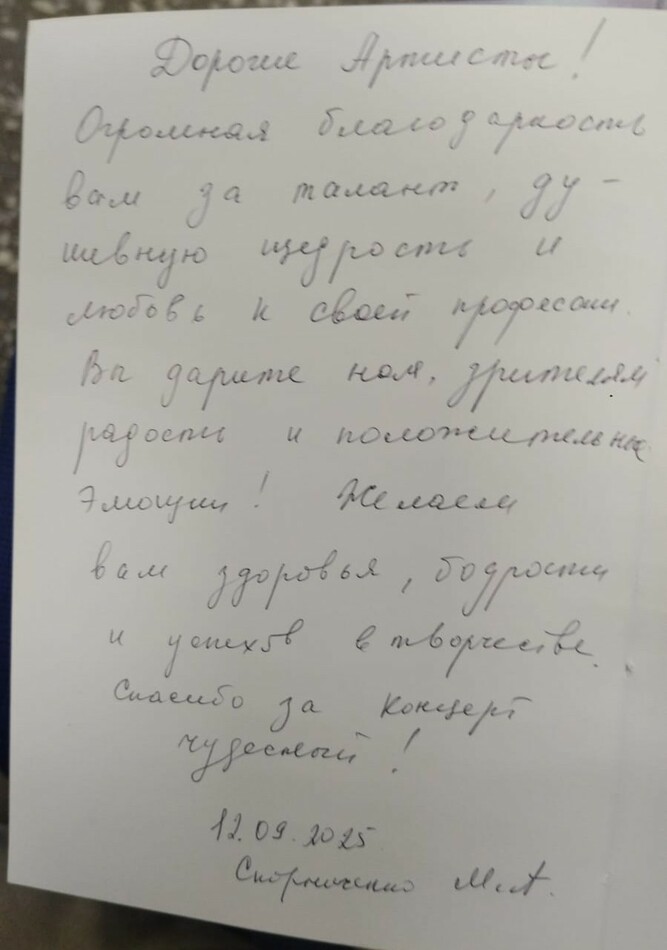 Дорогие Артисты!
Огромная благодарность
вам за талант, ду-
шевную щедрость и
любовь к своей професии.
Вы дарите нам, зрителям
радость и положительные
эмоции! Желаем
вам здоровья, бодрости
и успехов в творчестве.
Спасибо за концерт
чудесный!
12.09.2025
М.А.